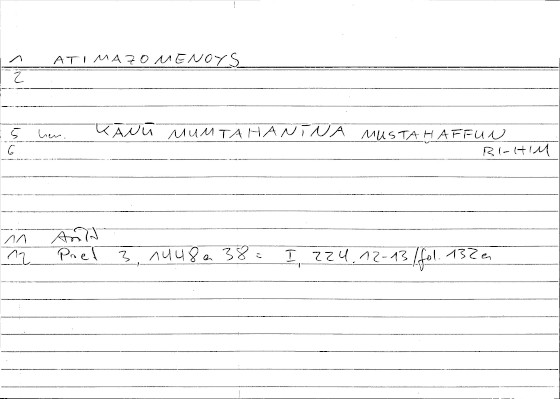 1 ATIMAZOMENOYS
2
5 hen. KĀNŪ MUMTAHANĪNA MUSTAḪAFFUN
6 BI-HIM
11
12 Poet 3, 1448a 38 = I, 224.12-13/fol. 132a